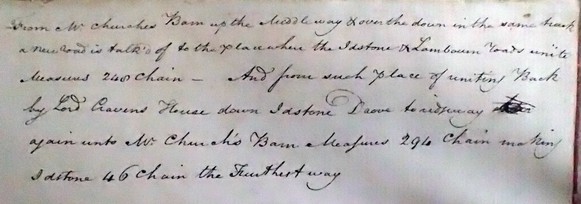 From Mr Churches Barn up the Middle way & over the down in the same track
a new road is talk'd of to the place where the Idstone & Lambourn roads unite
Measures 248 Chain — And from such place of uniting Back
by Lord Cravens House down Idstone Drove to ridgway
again unto Mr Church's Barn Measures 294 Chain making
Idstone 46 Chain the Furthest way